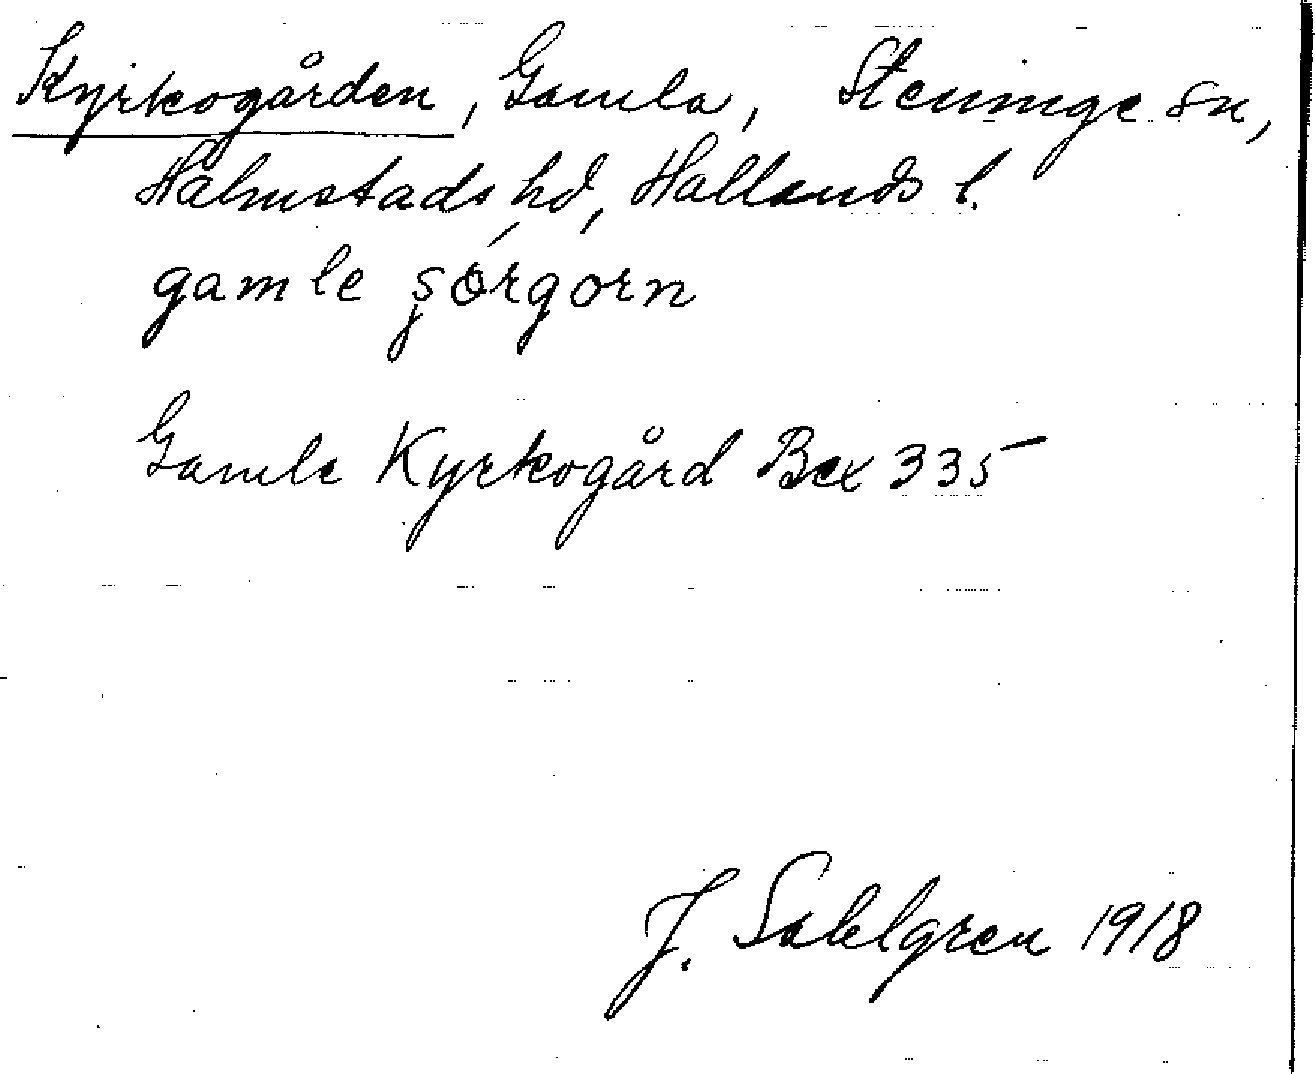 Kyrkogården, Gamla, Steninge sn,
Halmstads hd, Hallands l.
gamle
Gamle Kyrkogård Bex 335
J. Sahlgren 1918